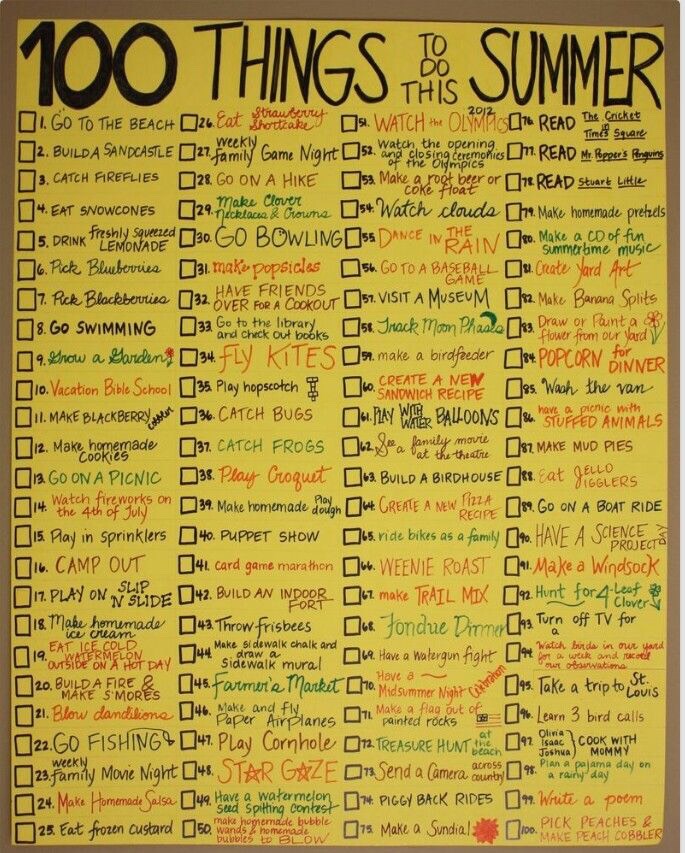 100 THINGS TO DO THIS SUMMER
1. GO TO THE BEACH
2. BUILD A SANDCASTLE
3. CATCH FIREFLIES
4. EAT SNOWCONES
5. DRINK freshly squeezed LEMONADE
6. Pick Blueberries
7. Pick Blackberries
8. GO SWIMMING
9. Grow a Garden
10. Vacation Bible School
11. MAKE BLACKBERRY cobbler
12. Make homemade cookies
13. GO ON A PICNIC
14. Watch fireworks on the 4th of July
15. Play in sprinklers
16. CAMP OUT
17. PLAY ON SLIP 'N SLIDE
18. Make homemade ice cream
19. EAT ICE COLD WATERMELON OUTSIDE ON A HOT DAY
20. BUILD A FIRE & MAKE S'MORES
21. Blow dandilions
22. GO FISHING
23. weekly family Movie Night
24. Make Homemade Salsa
25. Eat frozen custard
26. Eat Strawberry Shortcake
27. weekly family Game Night
28. GO ON A HIKE
29. Make Clover Necklaces & Crowns
30. GO BOWLING
31. make popsicles
32. HAVE FRIENDS OVER FOR A COOKOUT
33. Go to the library and check out books
34. FLY KITES
35. Play hopscotch
36. CATCH BUGS
37. CATCH FROGS
38. Play Croquet
39. Make homemade Play dough
40. PUPPET SHOW
41. card game marathon
42. BUILD AN INDOOR FORT
43. Throw frisbees
44. Make sidewalk chalk and draw a sidewalk mural
45. Farmer's Market
46. Make and fly Paper Airplanes
47. Play Cornhole
48. STAR GAZE
49. Have a watermelon seed spitting contest
50. make homemade bubble wands & homemade bubbles to BLOW
51. WATCH the 2012 OLYMPICS
52. Watch the opening and closing ceremonies of the Olympics
53. Make a root beer or coke float
54. Watch clouds
55. DANCE IN THE RAIN
56. GO TO A BASEBALL GAME
57. VISIT A MUSEUM
58. Track Moon Phases
59. make a birdfeeder
60. CREATE A NEW SANDWICH RECIPE
61. PLAY WITH WATER BALLOONS
62. See a family movie at the theatre
63. BUILD A BIRDHOUSE
64. CREATE A NEW PIZZA RECIPE
65. ride bikes as a family
66. WEENIE ROAST
67. make TRAIL MIX
68. Fondue Dinner
69. Have a Watergun fight
70. Have a Midsummer Night Celebration
71. Make a flag out of painted rocks
72. TREASURE HUNT at the beach
73. Send a Camera across country
74. PIGGY BACK RIDES
75. Make a Sundial
76. READ The Cricket in Times Square
77. READ Mr. Popper's Penguins
78. READ Stuart Little
79. Make homemade pretzels
80. Make a CD of fun summertime music
81. Create Yard Art
82. Make Banana Splits
83. Draw or Paint a flower from our Yard
84. POPCORN for DINNER
85. Wash the van
86. have a picnic with STUFFED ANIMALS
87. MAKE MUD PIES
88. Eat JELLO JIGGLERS
89. GO ON A BOAT RIDE
90. HAVE A SCIENCE PROJECT DAY
91. Make a Windsock
92. Hunt for 4-Leaf Clover
93. Turn off TV for a
94. Watch birds in our yard for a week and record our observations
95. Take a trip to St. LOUIS
96. Learn 3 bird calls
97. Olivia Isaac Joshua } COOK WITH MOMMY
98. Plan a pajama day on a rainy day
99. Write a poem
100. PICK PEACHES & MAKE PEACH COBBLER